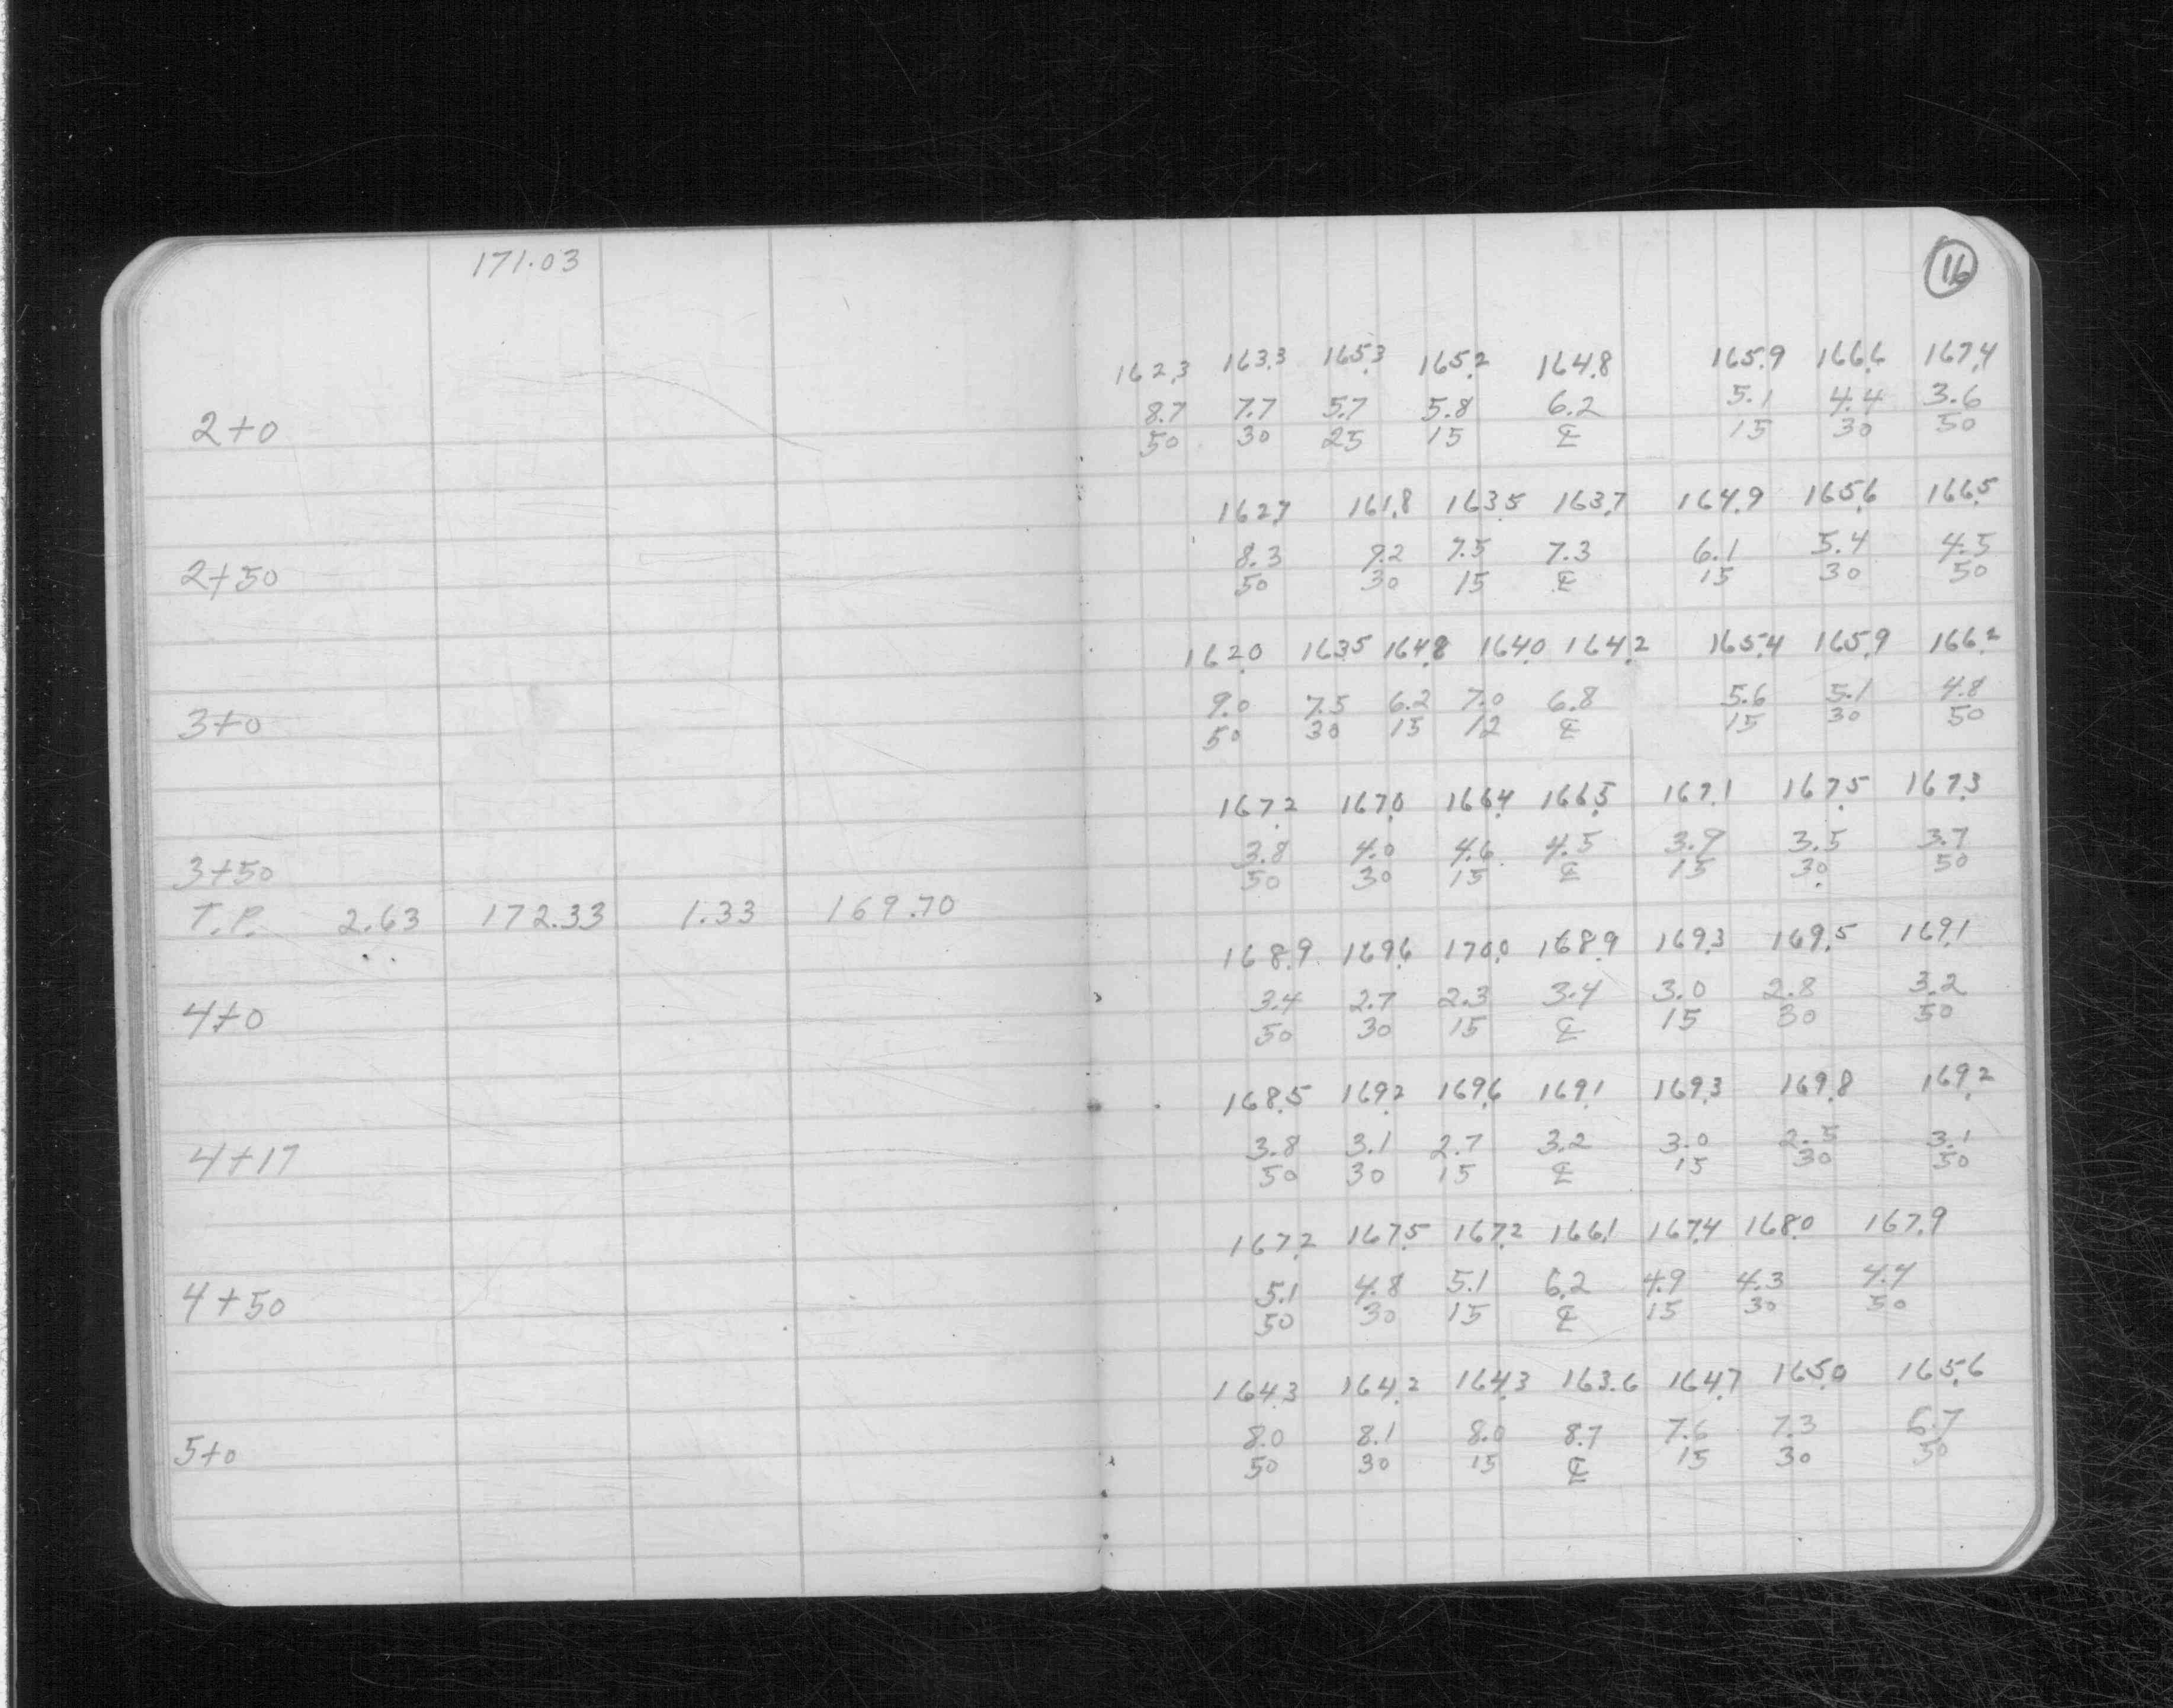 171.03
16
162.3 163.3 165.3 165.2 164.8 165.9 166.6 167.4
8.7 7.7 5.7 5.8 6.2 5.1 4.4 3.6
2+0 50 30 25 15 ℄ 15 30 50
162.7 161.8 163.5 163.7 164.9 165.6 166.5
8.3 9.2 7.5 7.3 6.1 5.4 4.5
2+50 50 30 15 ℄ 15 30 50
162.0 163.5 164.8 164.0 164.2 165.4 165.9 166.2
9.0 7.5 6.2 7.0 6.8 5.6 5.1 4.8
3+0 50 30 15 12 ℄ 15 30 50
167.2 167.0 166.4 166.5 167.1 167.5 167.3
3.8 4.0 4.6 4.5 3.9 3.5 3.7
3+50 50 30 15 ℄ 15 30 50
T.P. 2.63 172.33 1.33 169.70
168.9 169.6 170.0 168.9 169.3 169.5 169.1
3.4 2.7 2.3 3.4 3.0 2.8 3.2
4+0 50 30 15 ℄ 15 30 50
168.5 169.2 169.6 169.1 169.3 169.8 169.2
3.8 3.1 2.7 3.2 3.0 2.5 3.1
4+17 50 30 15 ℄ 15 30 50
167.2 167.5 167.2 166.1 167.4 168.0 167.9
5.1 4.8 5.1 6.2 4.9 4.3 4.4
4+50 50 30 15 ℄ 15 30 50
164.3 164.2 164.3 163.6 164.7 165.0 165.6
8.0 8.1 8.0 8.7 7.6 7.3 6.7
5+0 50 30 15 ℄ 15 30 50